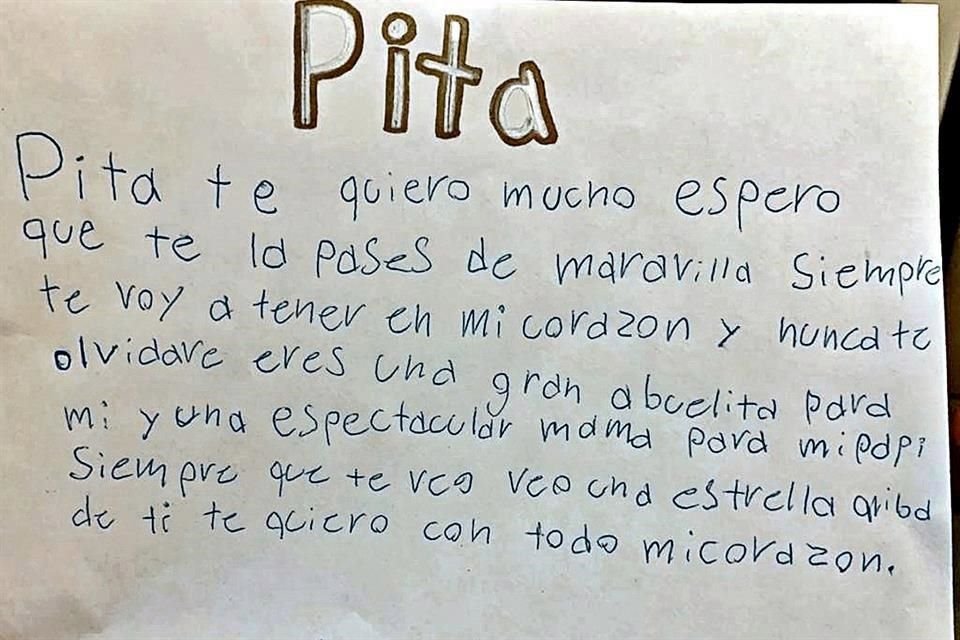 Pita
Pita te quiero mucho espero
que te la pases de maravilla Siempre
te voy a tener en mi corazon y nunca te
olvidare eres una gran abuelita para
mi y una espectacular mama para mi papi
Siempre que te veo veo una estrella ariba
de ti te quiero con todo mi corazon.